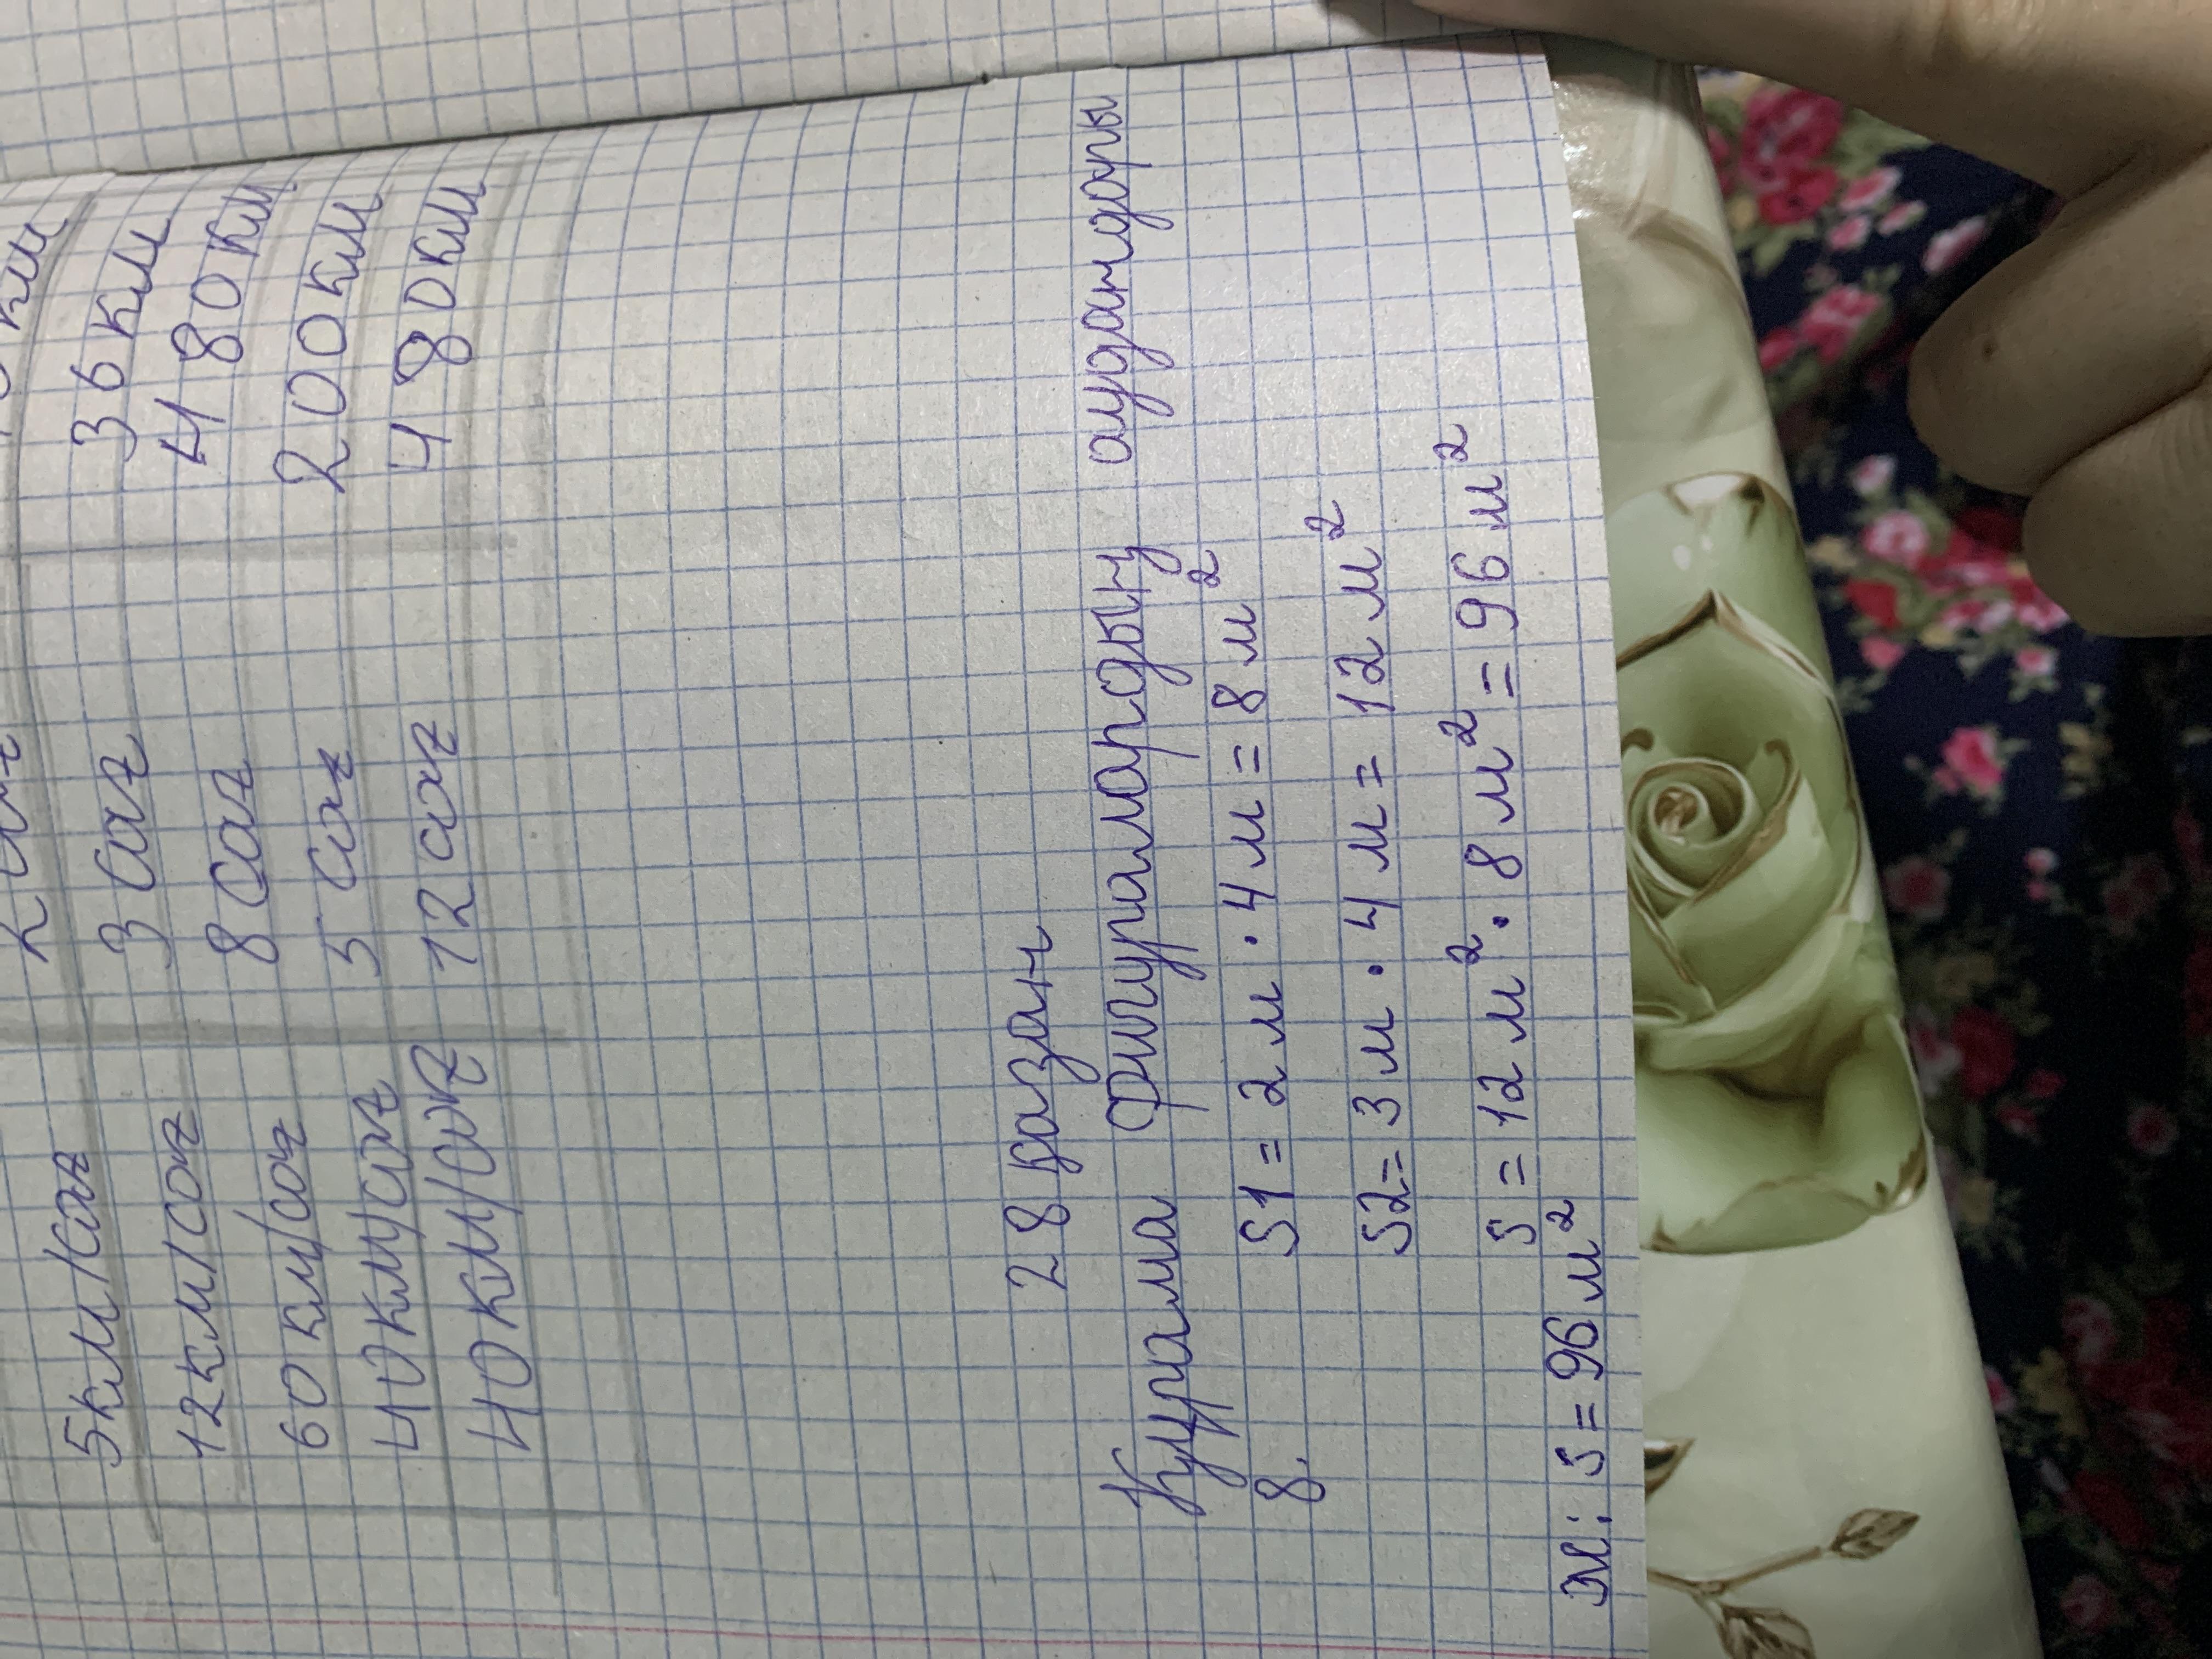 км
5км/сағ 3 сағ 36км
12км/сағ 8 сағ 480км
60км/сағ 5 сағ 200км
40км/сағ 12 сағ 480км
40км/сағ
28 қазан
Құрама фигуралардың аудандары
8. S1 = 2м · 4м = 8м²
S2 = 3м · 4м = 12м²
S = 12м² · 8м² = 96м²
Ж: S = 96м²